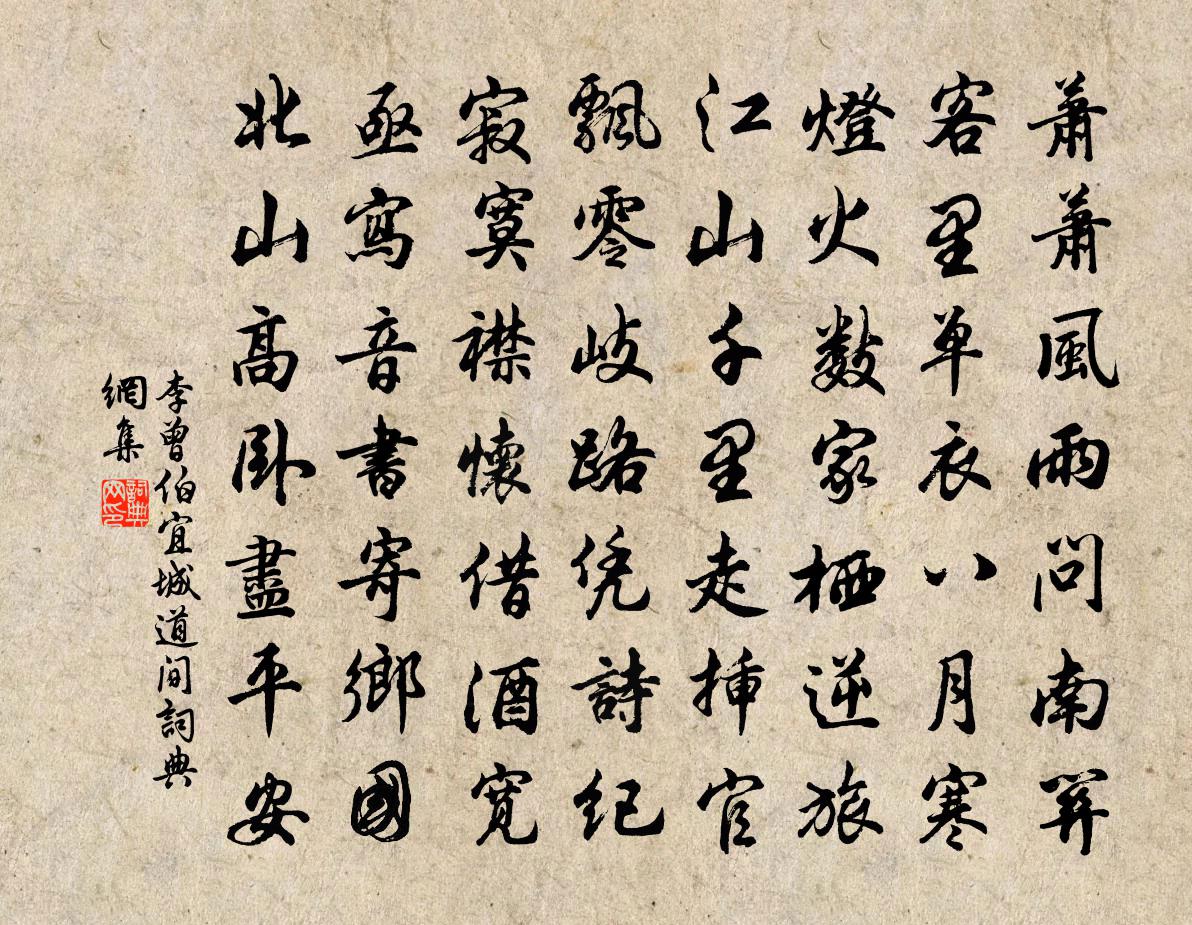 蕭蕭風雨問南關
客里單衣八月寒
燈火數家栖逆旅
江山千里走挿官
飄零岐路凭詩紀
寂寞襟懷借酒寬
亟寫音書寄鄉國
北山高卧盡平安
李曾伯宜城道間詞典
網集
詞典網印